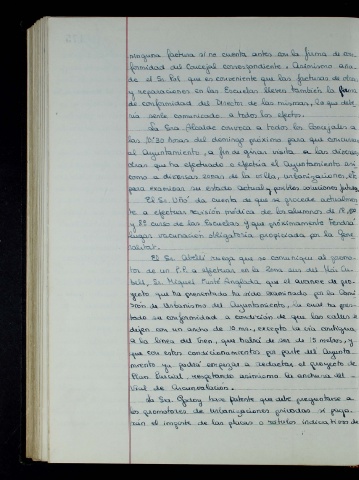 ninguna factura si no cuenta antes con la firma de con-
formidad del Concejal correspondiente. Asimismo aña-
de el Sr. que es conveniente que las facturas de obra
y reparaciones en las Escuelas lleven también la firma
de conformidad del Director de las mismas, lo que debe-
ría serle comunicado a todos los efectos.
La Sra. Alcalde convoca a todos los Concejales a
las 10'30 horas del domingo próximo para que concurran
al Ayuntamiento, a fin de girar visita a las diversas
obras que ha efectuado o efectúa el Ayuntamiento así
como a diversas zonas de la villa, urbanizaciones, etc.
para examinar su estado actual y posibles soluciones
El Sr. da cuenta de que se procede actualmen-
te a efectuar revisión médica de los alumnos de
y 8º curso de las Escuelas y que próximamente tendrá
lugar vacunación obligatoria propiciada por la Gene-
ralitat.
El Sr. ruega que se comunique al promo-
tor de un P.P. a efectuar en la zona sur del
Sr. Miguel que el avance de pro-
yecto que ha presentado ha sido examinado por la Comi-
sión de Urbanismo del Ayuntamiento, la cual ha pres-
tado su conformidad a condición de que las calles se
dejen con un ancho de 10 ms., excepto la vía contigua
a la línea del tren, que habrá de ser de 15 metros, y
que con estos condicionamientos por parte del Ayunta-
miento ya podrá empezar a redactar el proyecto de
Plan Parcial, respetando asimismo la anchura del
Vial de Circunvalación.
La Sra. Godoy hace patente que debe preguntarse a
los promotores de urbanizaciones privadas si paga-
rán el importe de las placas o rótulos indicativos de